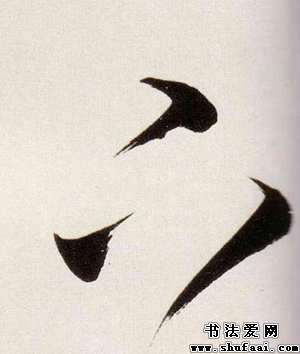 六
书法爱网
www.shufaai.com